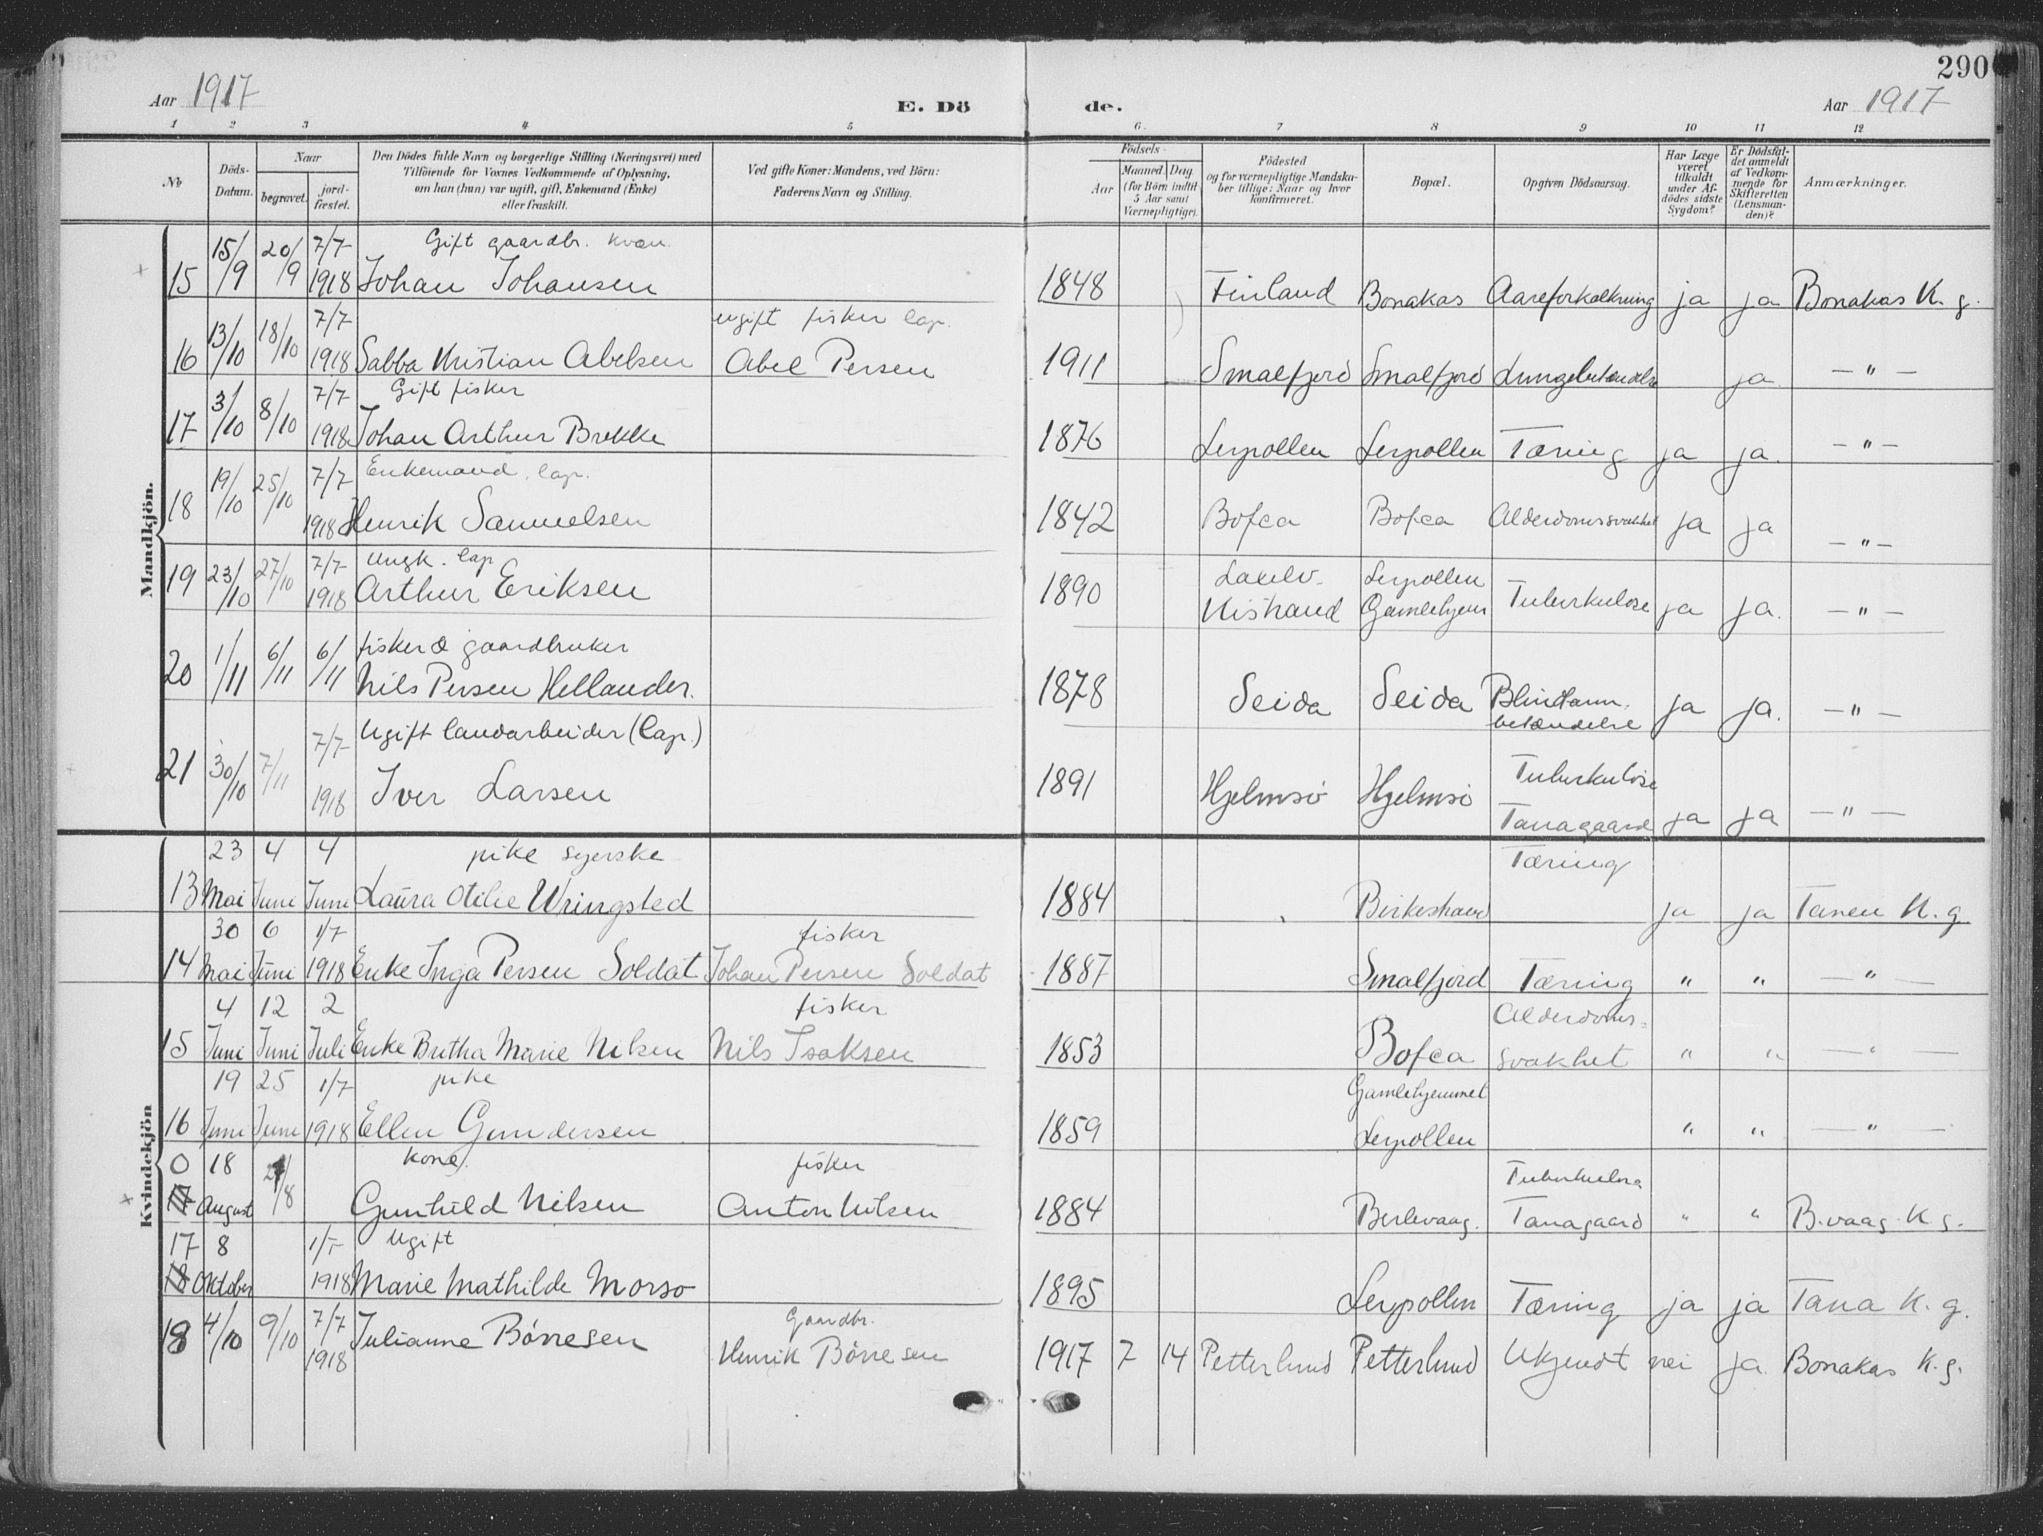 290
Aar 1917 E. Dö de. Aar 1917
1 2 3 4 5 6. 7 8 9 10 11 12
No
Döds-Datum.
Naar
begravet.
jord-fæstet.
Den Dödes fulde Navn og borgerlige Stilling (Næringsvei) med
Tilföiende for Voxnes Vedkommende af Oplysning,
om han (hun) var ugift, gift, Enkemand (Enke)
eller fraskilt.
Ved gifte Koner: Mandens, ved Börn:
Faderens Navn og Stilling.
Födsels-
Aar
Maaned. Dag
(for Börn indtil
5 Aar samt
Værnepligtige).
Födested
og for værnepligtige Mandska-
ber tillige: Naar og hvor
konfirmeret.
Bopæl.
Opgiven Dödsaarsag.
Har Læge
været
tilkaldt
under Af-
dödes sidste
Sygdom?
Er Dödsfal-
det anmeldt
af Vedkom-
mende for
Skifteretten
(Lensman-
den)?
Anmærkninger.
Mandkjön.
15 15/9 20/9 7/7 1918 Gift gaardbr. kvæn.
Johan Johansen 1848 Finland Bonakas Aareforkalkning ja ja Bonakas K. g.
16 13/10 18/10 7/7 1918 Sabba Kristian Abelsen ugift fisker lap.
Abel Persen 1911 Smalfjord Smalfjord Lungebetændelse ja — " —
17 3/10 8/10 7/7 1918 Gift fisker
Johan Arthur Brekke 1876 Leirpollen Leirpollen Tæring ja ja. — " —
18 19/10 25/10 7/7 1918 Enkemand. lap.
Henrik Samuelsen 1842 Bofca Bofca Alderdomssvakhet ja ja — " —
19 23/10 27/10 7/7 1918 Ungk. lap
Arthur Eriksen 1890 Laxelv- Kistrand Leirpollen Gamlehjem Tuberkulose ja ja. — " —
20 1/11 6/11 6/11 fisker & gaardbruker
Nils Persen Hellander. 1878 Seida Seida Blindtarm. betændelse ja ja. — " —
21 30/10 7/11 7/7 1918 Ugift landarbeider (lap.)
Iver Larsen 1891 Hjelmsö Hjelmsö Tuberkulose Tanagaard ja ja — " —
Kvindekjön
13 23 Mai 4 Juni 4 Juni pike syerske
Laura Otilie Wringsted 1884 Birkestrand Tæring ja ja Tanen K. g
14 30 Mai 6 Juni 1/7 1918 Enke Inga Persen Soldat fisker
Johan Persen Soldat 1887 Smalfjord Tæring " " — " —
15 4 Juni 12 Juni 2 Juli Enke Britha Marie Nilsen fisker
Nils Isaksen 1853 Bofca Alderdoms= svakhet " " — " —
16 19 Juni 25 Juni 1/7 1918 pike
Ellen Gundersen 1859 Gamlehjemmet Leirpollen " " — " —
0 18 August /8 kone
Gunhild Nilsen fisker
Anton Nilsen 1884 Berlevaag. Tuberkulose Tanagaard " " B.vaag K. g.
17 8 Oktober 1/7 1918 Ugift
Marie Mathilde Morso 1895 Leirpollen Tæring ja ja Tana K. g.
18 4/10 9/10 7/7 1918 Julianne Börresen Gaardbr.
Henrik Börresen 1917 7 14 Petterlund Petterlund Ukjendt nei ja. Bonakas K. g.